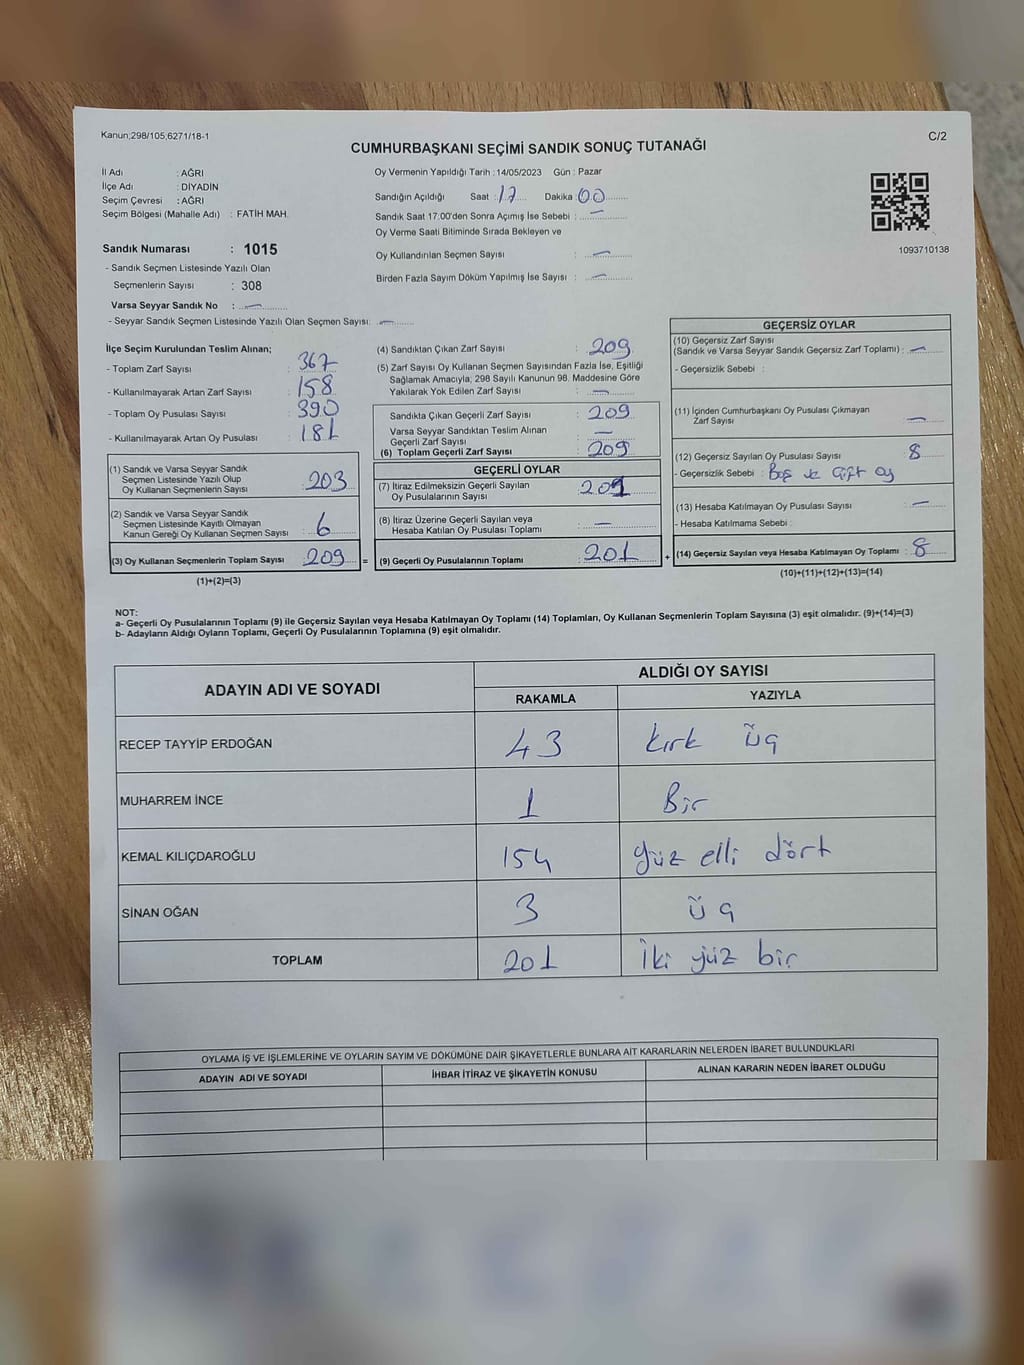 Kanun;298/105;6271/18-1
C/2
CUMHURBAŞKANI SEÇİMİ SANDIK SONUÇ TUTANAĞI
İl Adı : AĞRI
İlçe Adı : DİYADİN
Seçim Çevresi : AĞRI
Seçim Bölgesi (Mahalle Adı) : FATİH MAH.
Sandık Numarası : 1015
- Sandık Seçmen Listesinde Yazılı Olan
Seçmenlerin Sayısı : 308
Varsa Seyyar Sandık No : —
- Seyyar Sandık Seçmen Listesinde Yazılı Olan Seçmen Sayısı: —
Oy Vermenin Yapıldığı Tarih : 14/05/2023 Gün : Pazar
Sandığın Açıldığı Saat : 17 Dakika 00
Sandık Saat 17:00'den Sonra Açımış İse Sebebi : —
Oy Verme Saati Bitiminde Sırada Bekleyen ve
Oy Kullandırılan Seçmen Sayısı : —
Birden Fazla Sayım Döküm Yapılmış İse Sayısı : —
1093710138
İlçe Seçim Kurulundan Teslim Alınan;
- Toplam Zarf Sayısı : 367
- Kullanılmayarak Artan Zarf Sayısı : 158
- Toplam Oy Pusulası Sayısı : 390
- Kullanılmayarak Artan Oy Pusulası : 181
(1) Sandık ve Varsa Seyyar Sandık
Seçmen Listesinde Yazılı Olup
Oy Kullanan Seçmenlerin Sayısı : 203
(2) Sandık ve Varsa Seyyar Sandık
Seçmen Listesinde Kayıtlı Olmayan
Kanun Gereği Oy Kullanan Seçmen Sayısı : 6
(3) Oy Kullanan Seçmenlerin Toplam Sayısı : 209 =
(1)+(2)=(3)
(4) Sandıktan Çıkan Zarf Sayısı : 209
(5) Zarf Sayısı Oy Kullanan Seçmen Sayısından Fazla İse, Eşitliği
Sağlamak Amacıyla; 298 Sayılı Kanunun 98. Maddesine Göre
Yakılarak Yok Edilen Zarf Sayısı : —
Sandıkta Çıkan Geçerli Zarf Sayısı : 209
Varsa Seyyar Sandıktan Teslim Alınan
Geçerli Zarf Sayısı : —
(6) Toplam Geçerli Zarf Sayısı : 209
GEÇERLİ OYLAR
(7) İtiraz Edilmeksizin Geçerli Sayılan
Oy Pusulalarının Sayısı : 201
(8) İtiraz Üzerine Geçerli Sayılan veya
Hesaba Katılan Oy Pusulası Toplamı : —
(9) Geçerli Oy Pusulalarının Toplamı : 201 +
GEÇERSİZ OYLAR
(10) Geçersiz Zarf Sayısı
(Sandık ve Varsa Seyyar Sandık Geçersiz Zarf Toplamı) : —
- Geçersizlik Sebebi :
(11) İçinden Cumhurbaşkanı Oy Pusulası Çıkmayan
Zarf Sayısı : —
(12) Geçersiz Sayılan Oy Pusulası Sayısı : 8
- Geçersizlik Sebebi : Boş ve Çift oy
(13) Hesaba Katılmayan Oy Pusulası Sayısı : —
- Hesaba Katılmama Sebebi :
(14) Geçersiz Sayılan veya Hesaba Katılmayan Oy Toplamı : 8
(10)+(11)+(12)+(13)=(14)
NOT:
a- Geçerli Oy Pusulalarının Toplamı (9) ile Geçersiz Sayılan veya Hesaba Katılmayan Oy Toplamı (14) Toplamları, Oy Kullanan Seçmenlerin Toplam Sayısına (3) eşit olmalıdır. (9)+(14)=(3)
b- Adayların Aldığı Oyların Toplamı, Geçerli Oy Pusulalarının Toplamına (9) eşit olmalıdır.
ADAYIN ADI VE SOYADI ALDIĞI OY SAYISI
RAKAMLA YAZIYLA
RECEP TAYYİP ERDOĞAN 43 kırk üç
MUHARREM İNCE 1 Bir
KEMAL KILIÇDAROĞLU 154 yüz elli dört
SİNAN OĞAN 3 üç
TOPLAM 201 İki yüz bir
OYLAMA İŞ VE İŞLEMLERİNE VE OYLARIN SAYIM VE DÖKÜMÜNE DAİR ŞİKAYETLERLE BUNLARA AİT KARARLARIN NELERDEN İBARET BULUNDUKLARI
ADAYIN ADI VE SOYADI İHBAR İTİRAZ VE ŞİKAYETİN KONUSU ALINAN KARARIN NEDEN İBARET OLDUĞU